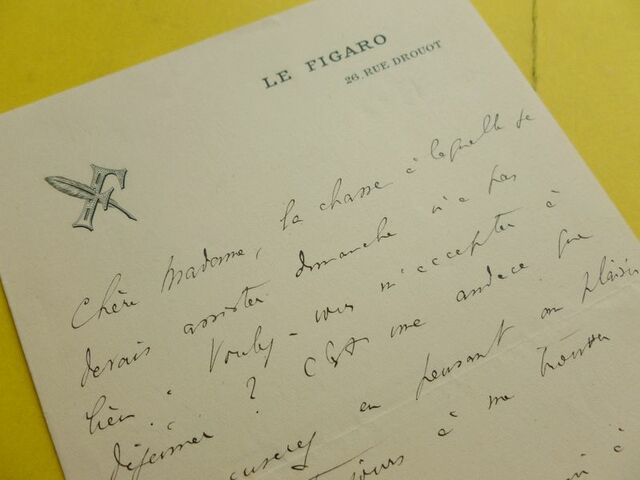 LE FIGARO
26, RUE DROUOT
F
Chère Madame, la chasse à laquelle je
devais assister dimanche n'a pas
lieu. Voulez-vous m'accepter à
déjeuner ? C'est une audace que
excuserez en pensant au plaisir
à me trouver
à